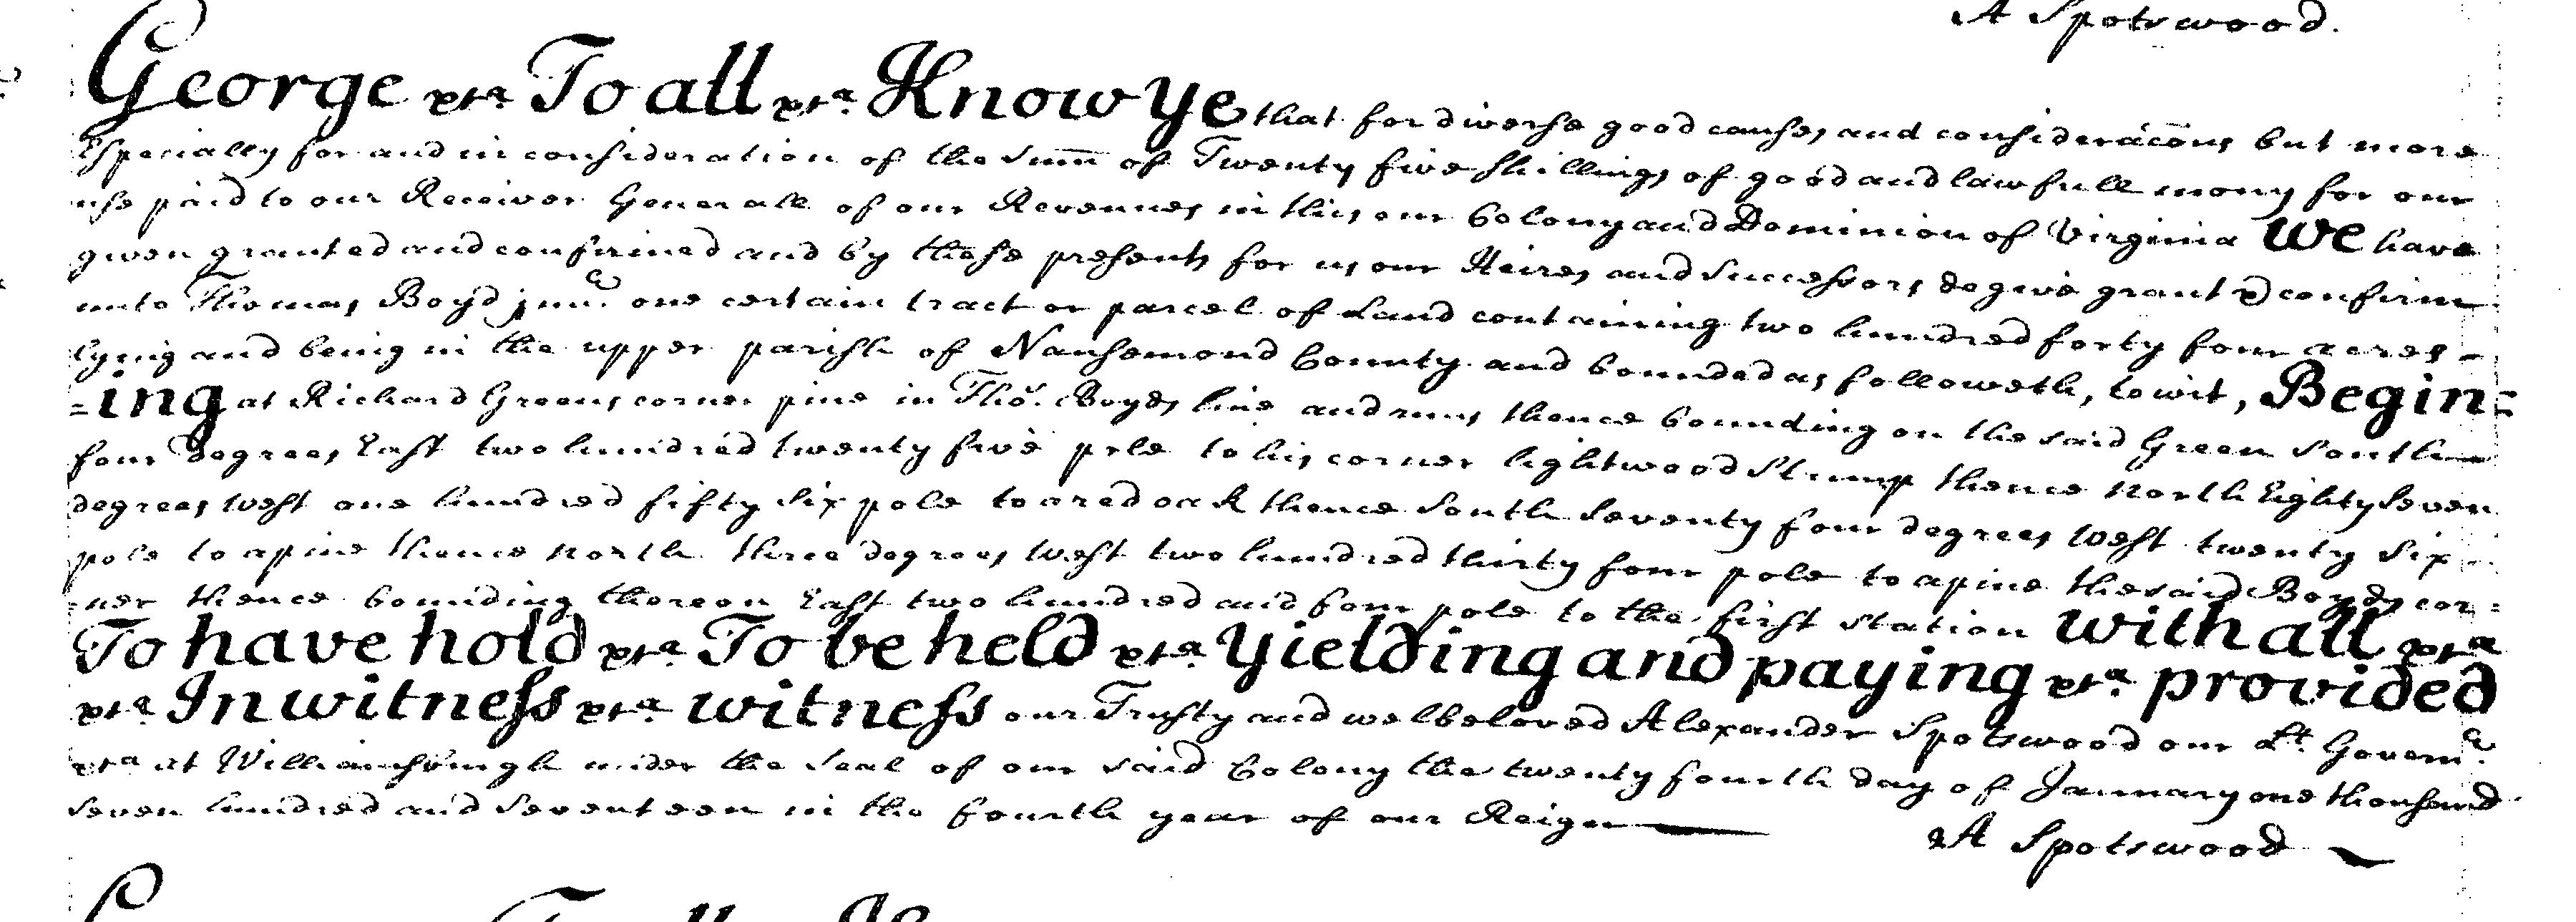 A Spotswood.
George &ca To all &ca Know Ye that for diverse good causes and consideracons but more
Especially for and in consideration of the Sum of Twenty five shillings of good and lawfull mony for our
use paid to our Receiver Generall of our Revenues in this our Colony and Dominion of Virginia We have
given granted and confirmed and by these presents for us our Heires and Successors do give grant & confirm
unto Thomas Boyd junr. one certain tract or parcel of Land containing two hundred forty four acres -
lying and being in the upper parish of Nansemond County and bounded as followeth, to wit, Begin=
=ing at Richard Greens corner pine in Tho. Boyds line and runs thence bounding on the said Green South
four degrees East two hundred twenty five pole to his corner lightwood Stump thence North Eighty Seven
degrees West one hundred fifty Six pole to a red oak thence South Seventy four degrees West twenty Six
pole to a pine thence North three degrees West two hundred thirty four pole to a pine the said Boyds cor=
=ner thence bounding thereon East two hundred and four pole to the first Station With all &ca
To have hold &ca To be held &ca Yielding and paying &ca provided
&ca In witness &ca witness our Trusty and welbeloved Alexander Spotswood our Lt. Governr.
&ca at Williamsburgh under the Seal of our said Colony the twenty fourth day of January one thousand
Seven hundred and Seventeen in the fourth year of our Reign
A Spotswood